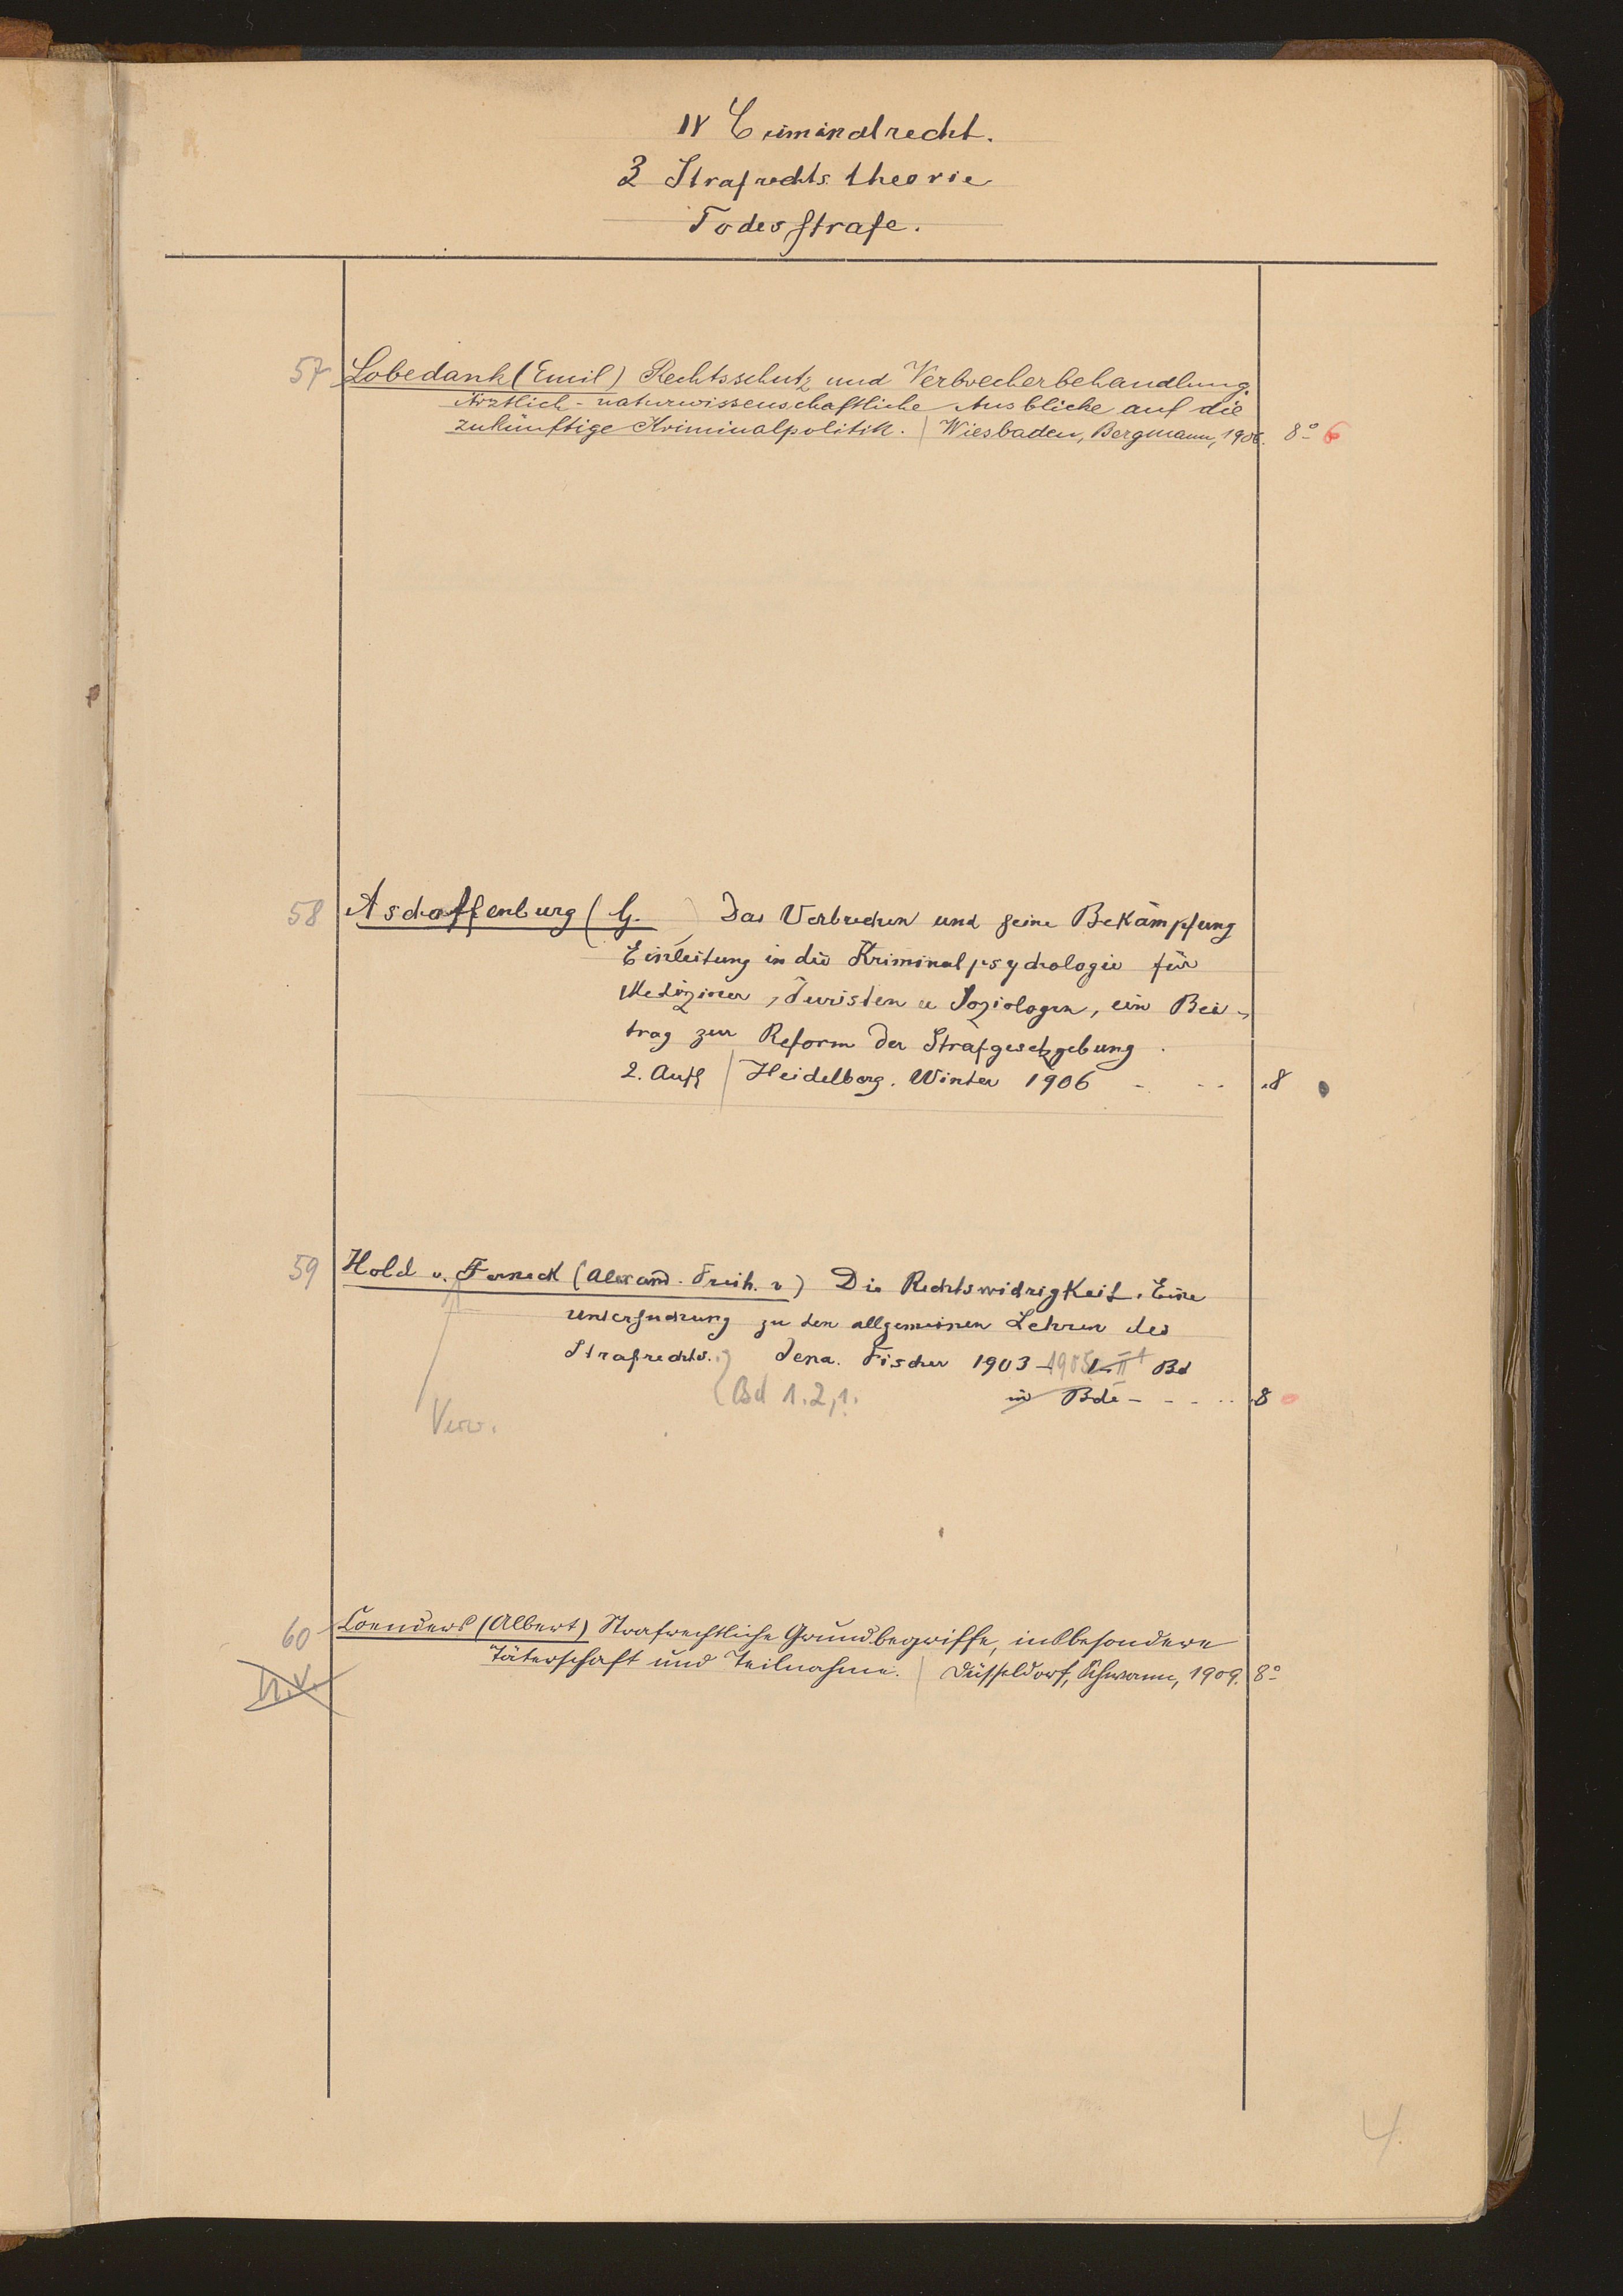 IV Criminalrecht.
3 Strafrechtstheorie
Todesstrafe.
57 Lobedank (Emil) Rechtsschutz und Verbrecherbehandlung
Ärztlich-naturwissenschaftliche Ausblicke auf die
zukünftige Kriminalpolitik. | Wiesbaden, Bergmann, 1906. 8° 6
58 Aschaffenburg (G. ) Das Verbrechen und seine Bekämpfung
Einleitung in die Kriminalpsychologie für
Mediziner, Juristen u Soziologen, ein Bei-
trag zur Reform der Strafgesetzgebung.
2. Aufl | Heidelberg. Winter 1906 - - - 8
59 Hold v. Ferneck (Alexand. Freih. v) Die Rechtswidrigkeit. Eine
Untersuchung zu den allgemeinen Lehren des
Strafrechts. Jena. Fischer 1903-1905 II Bd
(Bd 1.2,1. in Bde - - - 8
Verw.
60 Coenders (Albert) Strafrechtliche Grundbegriffe, insbesondere
Täterschaft und Teilnahme. | Düsseldorf, Schwann, 1909. 8°
n.v.
4.